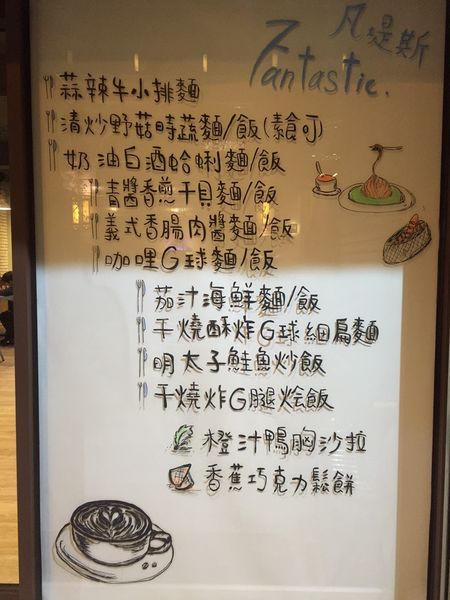 凡堤斯
Fantastic.
蒜辣牛小排麵
清炒野菇時蔬麵/飯(素可)
奶油白酒蛤蜊麵/飯
青醬香煎干貝麵/飯
義式香腸肉醬麵/飯
咖哩G球麵/飯
茄汁海鮮麵/飯
干燒酥炸G球細扁麵
明太子鮭魚炒飯
干燒炸G腿烩飯
橙汁鴨胸沙拉
香蕉巧克力鬆餅